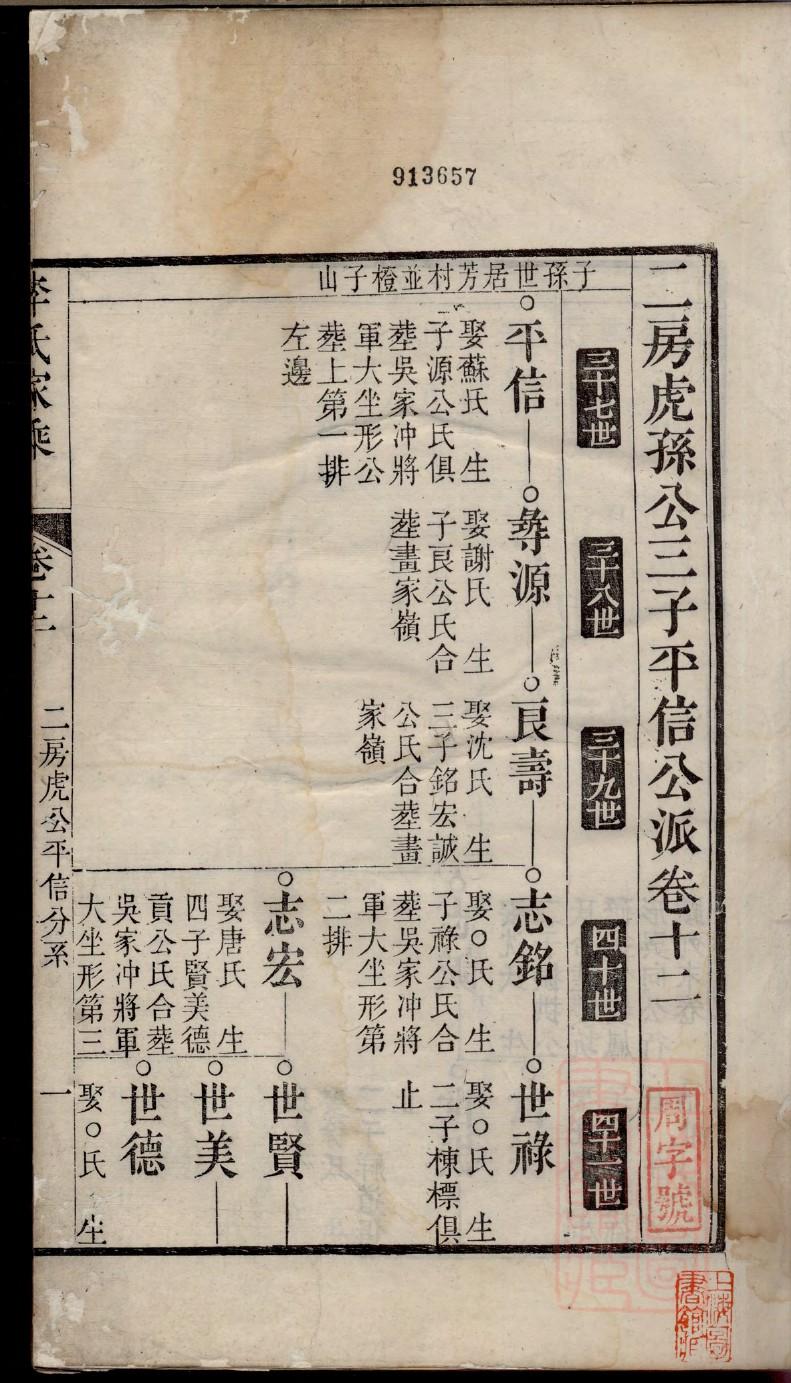 913657
二房虎孫公三子平信公派卷十二
周字號
上海圖書館藏
三十七世
三十八世
三十九世
四十世
四十一世
子孫世居芳村並橙子山
平信
娶蘇氏 生
子源公氏俱
塟吳家冲將
軍大坐形公
塟上第一排
左邊
彜源
娶謝氏 生
子良公氏合
塟畫家嶺
良壽
娶沈氏 生
三子銘宏誠
公氏合塟畫
家嶺
志銘
娶○氏 生
子祿公氏合
塟吳家冲將
軍大坐形第
二排
世祿
娶○氏 生
二子棟標俱
止
志宏
娶唐氏 生
四子賢美德
貢公氏合塟
吳家冲將軍
大坐形第三
世賢
世美
世德
娶○氏 生
李氏家乘
卷十二
二房虎公平信分系
一